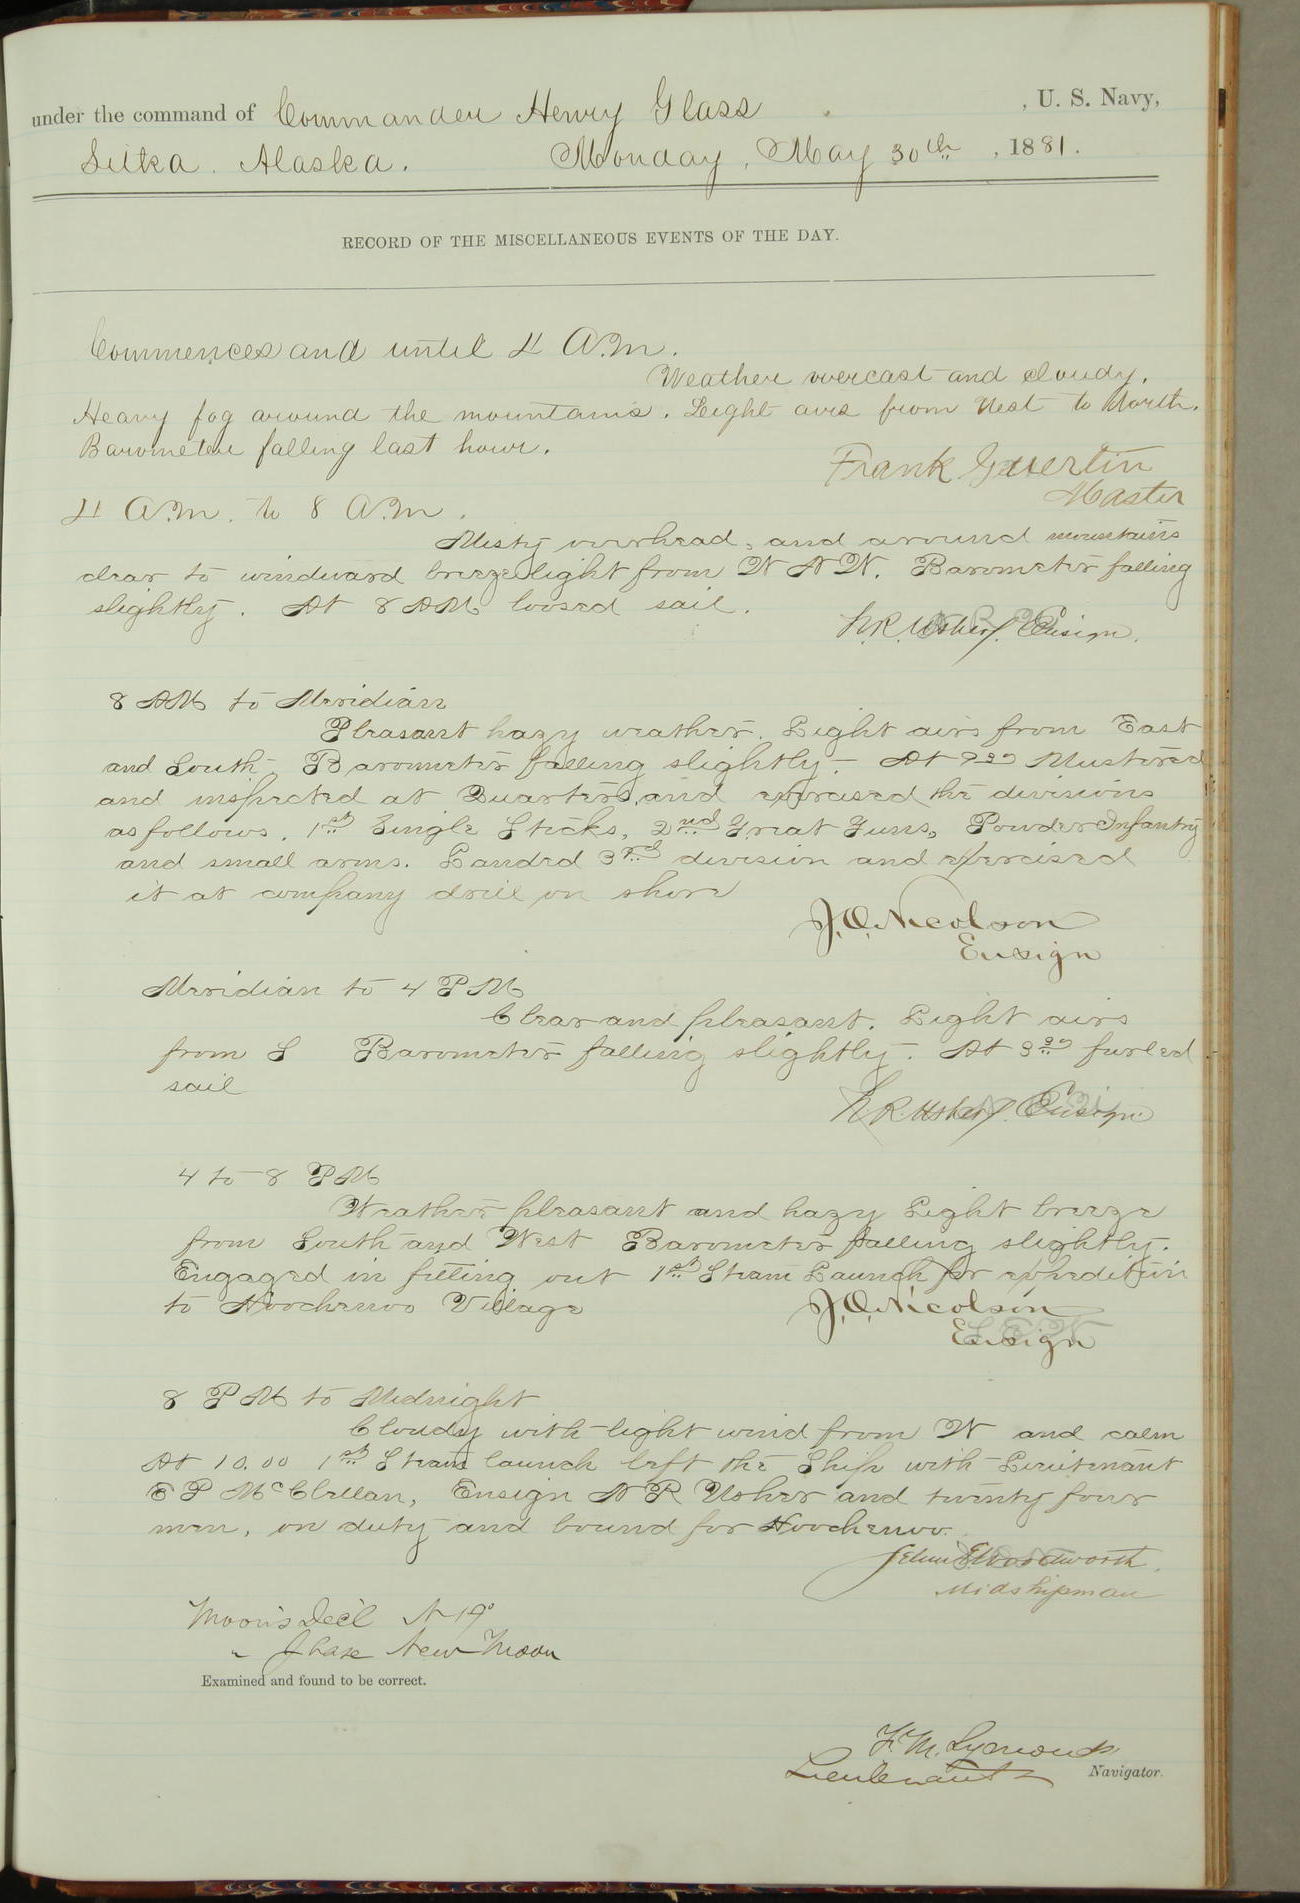 under the command of Commander Henry Glass , U. S. Navy,
Sitka. Alaska. Monday, May 30th , 1881.
RECORD OF THE MISCELLANEOUS EVENTS OF THE DAY.
Commences and until 4 A.M.
Weather overcast and cloudy.
Heavy fog around the mountains. Light airs from West to North.
Barometer falling last hour.
Frank Guertin
Master
4 A.M. to 8 A.M.
Misty overhead, and around mountains
clear to windward breeze light from W N W. Barometer falling
slightly. At 8 AM loosed sail.
N.R. Usher, Ensign.
8 AM to Meridian
Pleasant hazy weather. Light airs from East
and South. Barometer falling slightly. At 9.30 Mustered
and inspected at Quarters, and exercised the divisions
as follows. 1st Single Sticks, 2nd Great Guns, Powder Infantry
and small arms. Landed 3rd division and exercised
it at company drill on shore
J.O. Nicolson
Ensign
Meridian to 4 PM
Clear and pleasant. Light airs
from S Barometer falling slightly. At 3.30 furled
sail
N R Usher, Ensign
4 to 8 PM
Weather pleasant and hazy Light breeze
from South and West Barometer falling slightly.
Engaged in fitting out 1st Steam Launch for expedition
to Hoochenoo Village
J.O. Nicolson
Ensign
8 PM to Midnight
Cloudy with light wind from W and calm
At 10.00 1st Steam launch left the Ship with Lieutenant
E P McClellan, Ensign N R Usher and twenty four
men, on duty and bound for Hoochenoo.
John E Woodworth.
Midshipman
Moon's Dec'l N 19°
" Phase New Moon
Examined and found to be correct.
F. M. Symonds
Lieutenant Navigator.